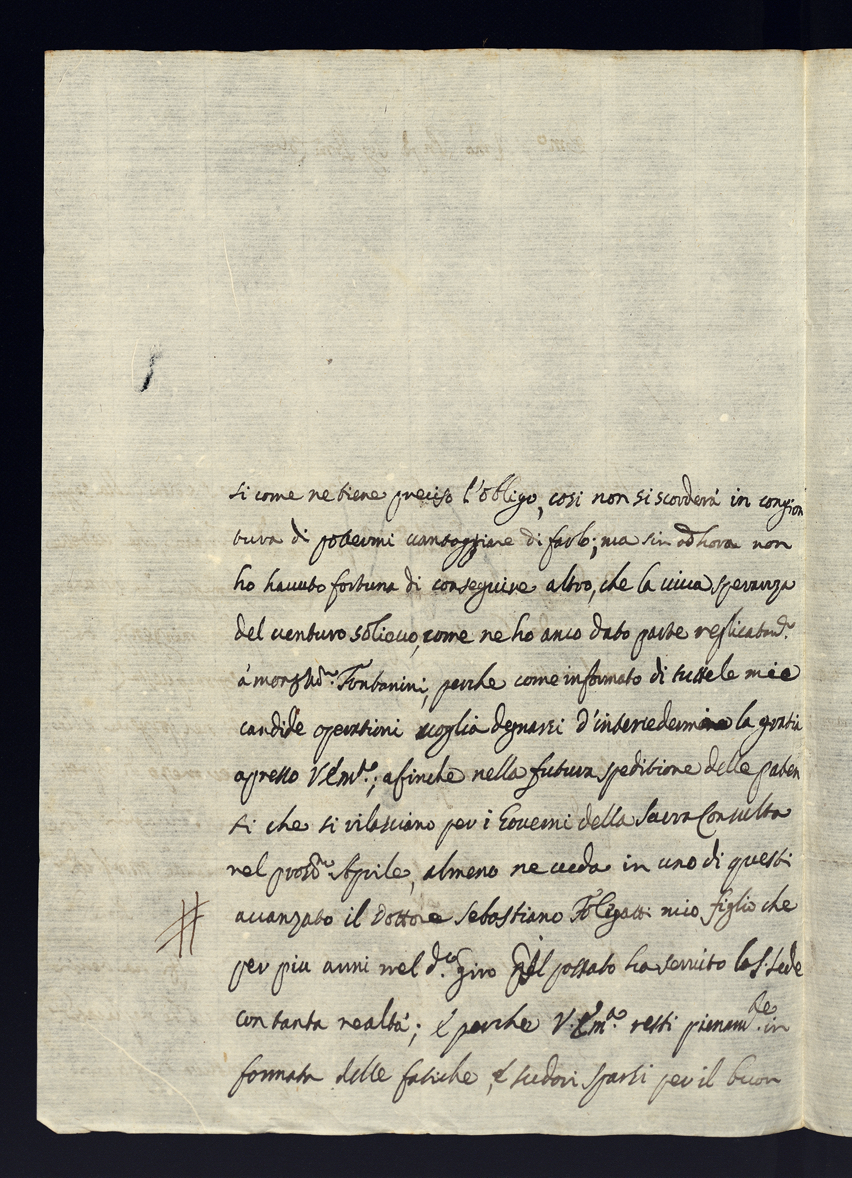 si come ne tiene preciso l'obligo, cosi non si scorderà in congion
tura di potermi vantaggiare di farlo; ma sin ad hora non
ho hauuto fortuna di conseguire altro, che la uiua speranza
del uenturo solieuo, come ne ho anco dato parte replicatam.te
à monsig.r Fontanini, perche come informato di tutte le mie
candide operationi uoglia degnarsi d'intercedermi la gratia
apresso V. Em.a; afinche nella futura speditione delle paten
ti che si rilasciano per i Gouerni della Sacra Consulta
nel pross.o Aprile, almeno ne ueda in uno di questi
auanzato il Dottore Sebastiano mio figlio che
per piu anni nel d.o giro pel passato ha seruito la S. Sede
con tanta realtà; e perche V. Em.a resti pienam.te in
formata delle fatiche, e sudori sparsi per il buon